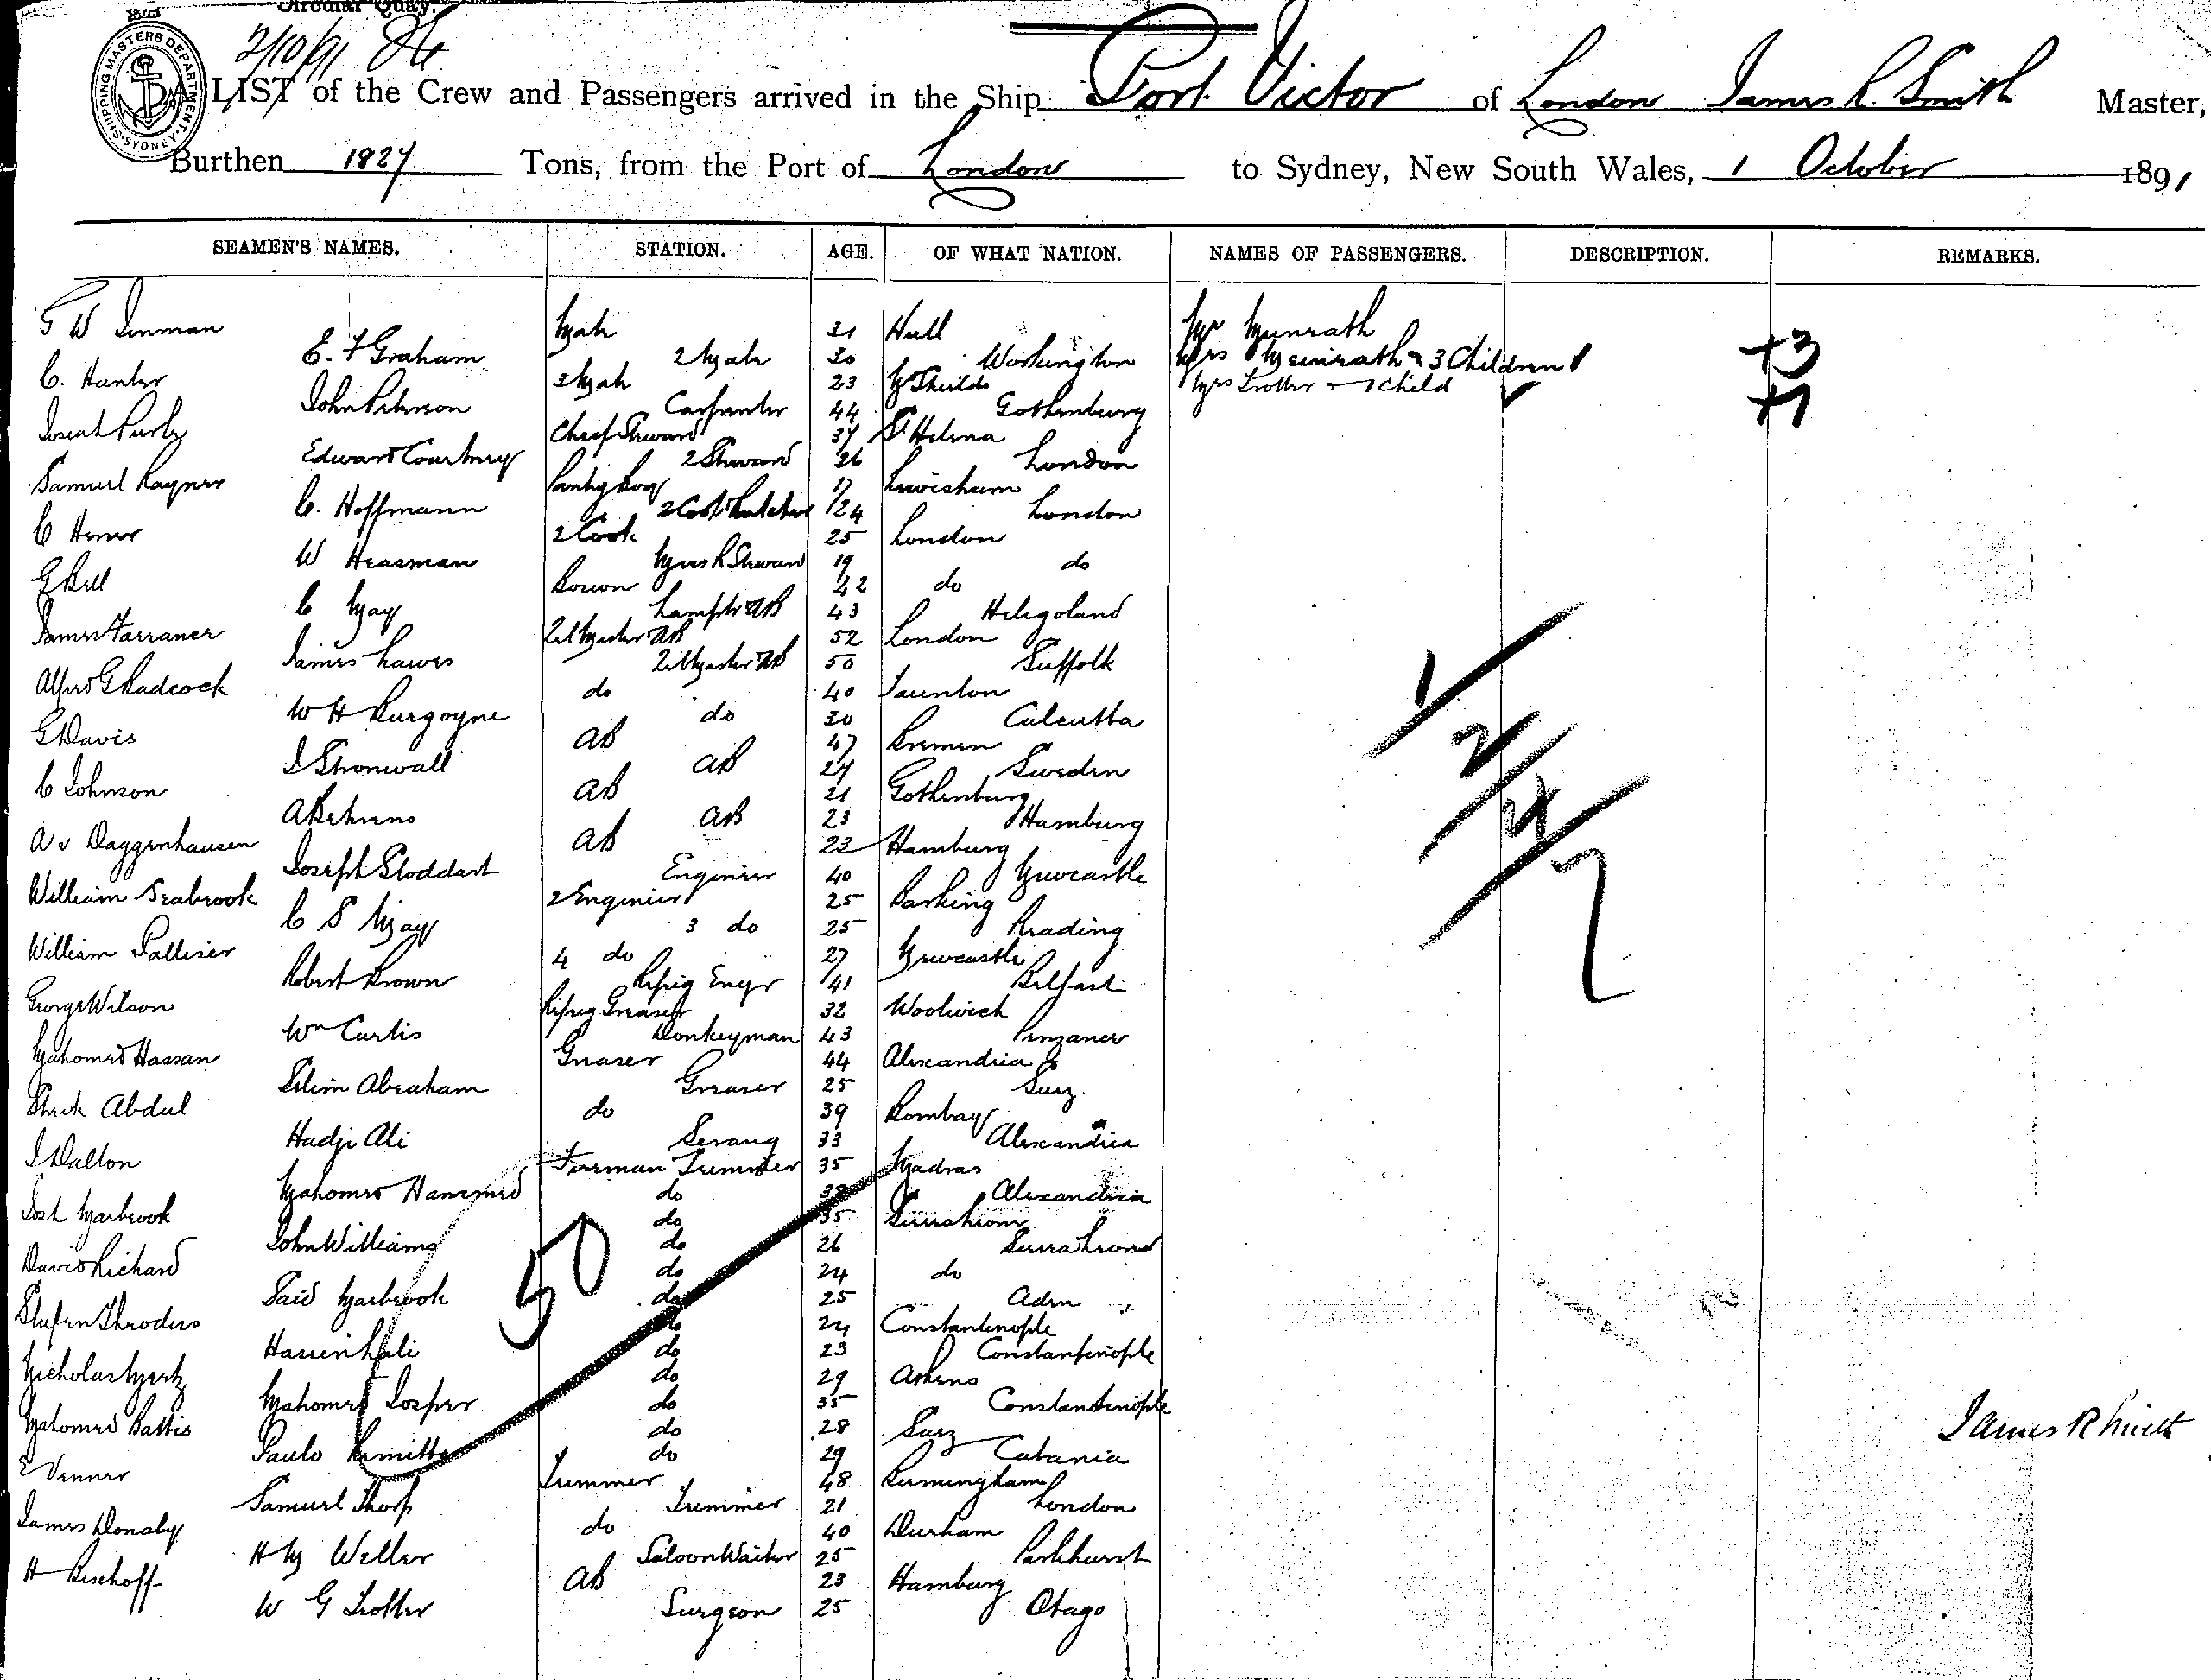 Circular Quay.
SHIPPING MASTERS DEPARTMENT
SYDNEY
2/10/91
A LIST of the Crew and Passengers arrived in the Ship Port Victor of London James R. Smith Master,
Burthen 1827 Tons, from the Port of London to Sydney, New South Wales, 1 October 1891
SEAMEN'S NAMES. STATION. AGE. OF WHAT NATION. NAMES OF PASSENGERS. DESCRIPTION. REMARKS.
G W Inman Mate 31 Hull Mr Munrath
E. F Graham 2 Mate 30 Workington Mrs Meinrath & 3 Children +3
C. Hunter 3 Mate 23 N Shields Mrs Trotter 1 Child +1
John Peterson Carpenter 44 Gothenburg
Josiah Purly Chief Steward 37 St Helena
Edward Courtney 2 Steward 26 London
Samuel Rayner Pantry Boy 17 Lewisham
C. Hoffmann 2 Cook Butcher 24 London
C 2 Cook 25 London
W Heasman Mess R Steward 19 do
G Bell Bosun 42 do
C May Lamptr AB 43 Heligoland
James Farrance Qr Master AB 52 London
James Lawes Qr Master AB 50 Suffolk
Alfred G Badcock do 40 Taunton
W H Burgoyne do 30 Calcutta
G Davis AB 47 Bremen
I Stromwall AB 27 Sweden
C Johnson AB 21 Gothenburg
A Behrens AB 23 Hamburg
A v Daggenhausen AB 23 Hamburg
Joseph Stoddart Engineer 40 Newcastle
William Seabrook 2 Engineer 25 Barking
C S May 3 do 25 Reading
William Palliser 4 do 27 Newcastle
Robert Brown Refrig Engr 41 Belfast
George Wilson Refrig Greaser 32 Woolwich
Wm Curtis Donkeyman 43 Penzance
Mahomed Hassan Greaser 44 Alexandria
Selim Abraham Greaser 25 Suez
Sheik Abdul do 39 Bombay
Hadji Ali Serang 33 Alexandria
J Dalton Fireman Trimmer 35 Madras
Mahomed Hammed do 38 Alexandria
Josh Marbrook do 35 Sierraleone
John Williams do 26 Sierra Leone
David Richard do 24 do
Said Marbrook do 25 Aden
Stephen Throders do 24 Constantinople
Hassein do 23 Constantinople
Nicholas Mertz do 29 Athens
Mahomed Josper do 35 Constantinople
Mahomed Battis do 28 Suez
Paulo do 29 Catania
E Venner Trimmer 48 Birmingham
Samuel Thorp Trimmer 21 London
James Donaby do 40 Durham
H M Weller Saloon Waiter 25 Parkhurst
H Bischoff AB 23 Hamburg
W G Trotter Surgeon 25 Otago
50
1/
2/
James R Smith